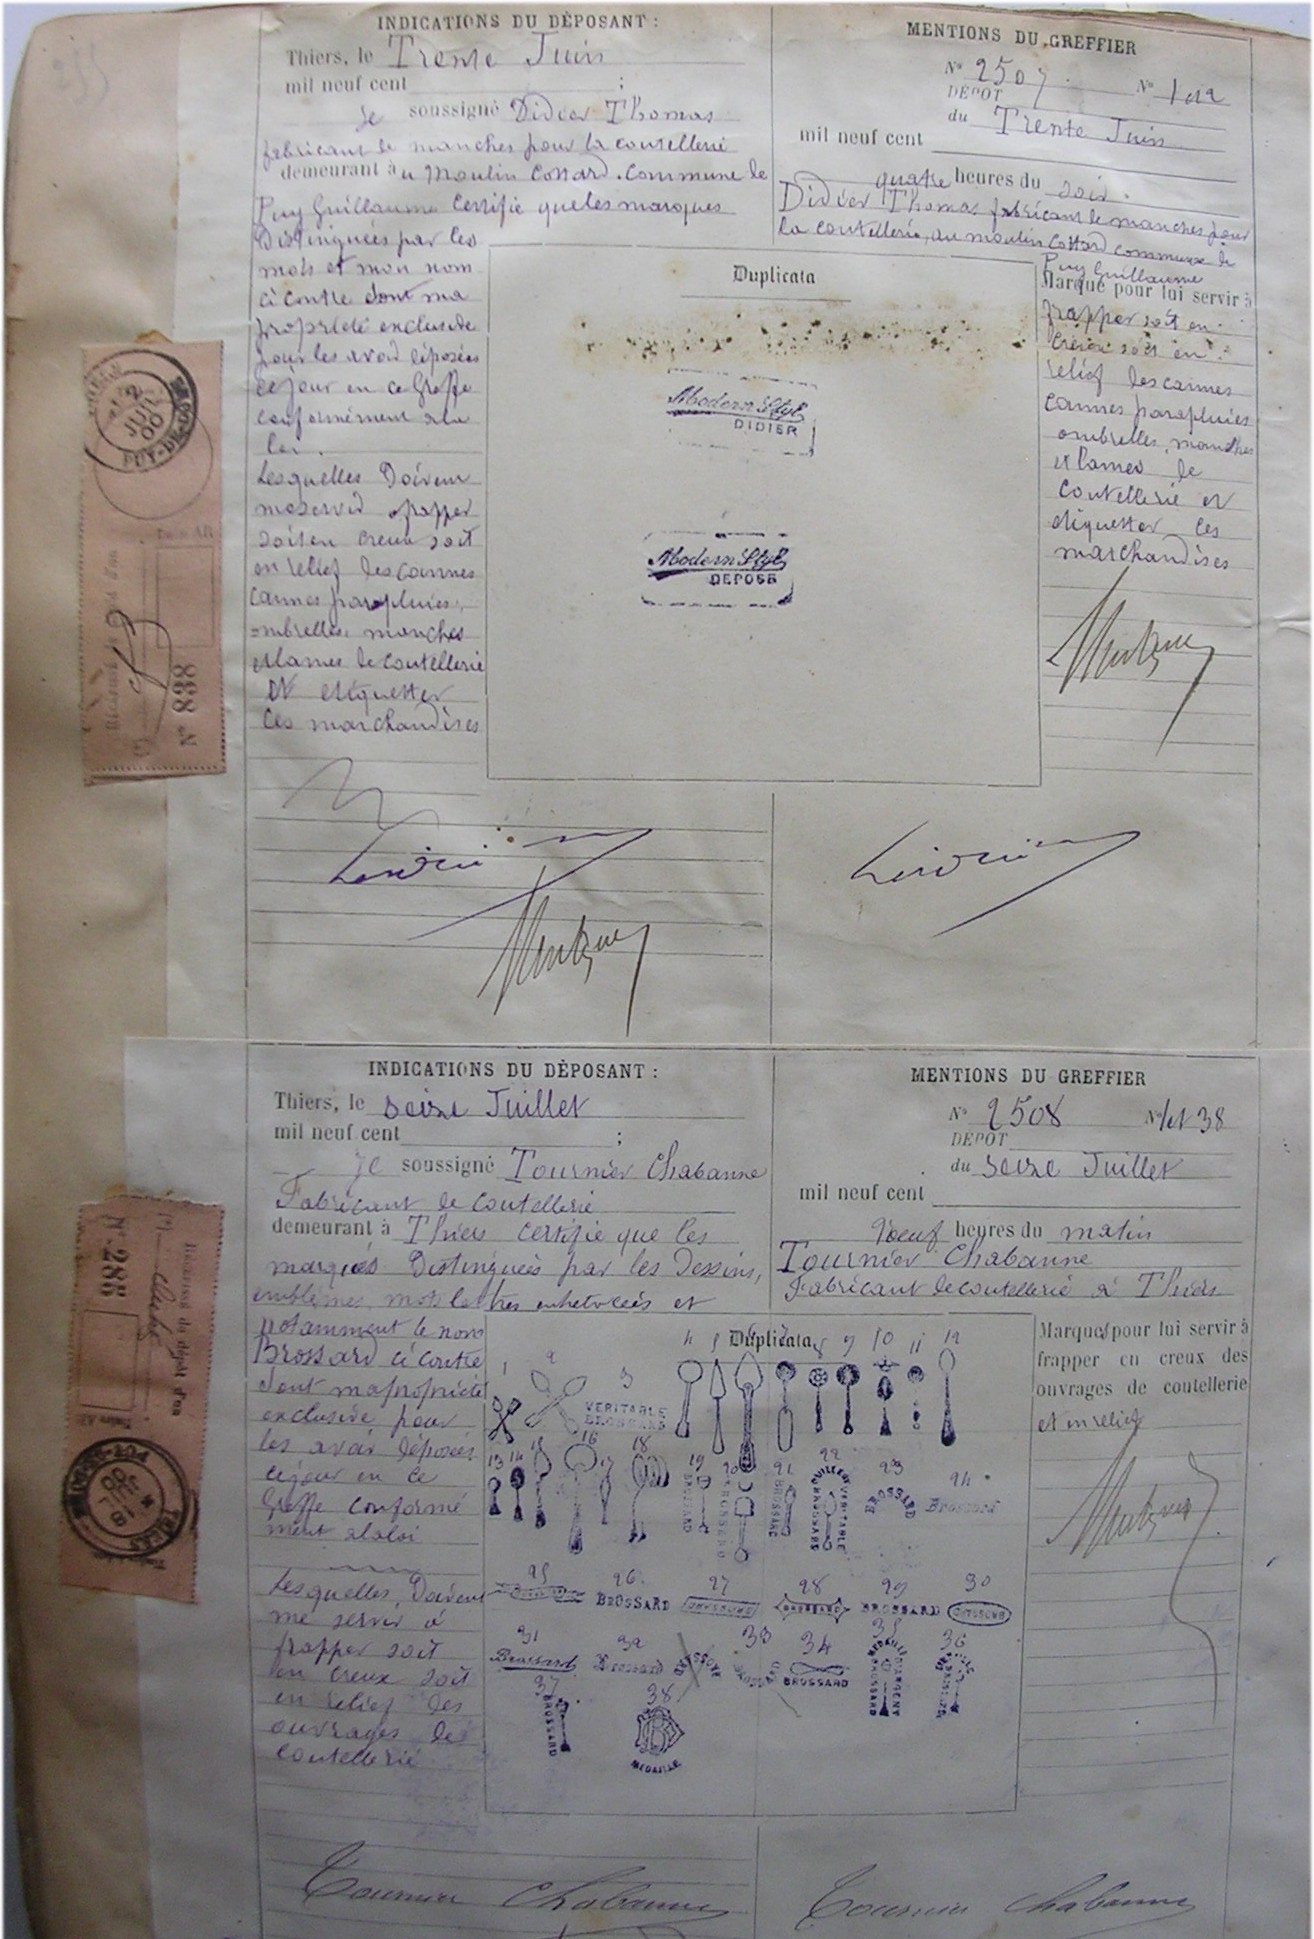 INDICATIONS DU DÉPOSANT :
Thiers, le Trente Juin
mil neuf cent ;
Je soussigné Didier Thomas
fabricant de manches pour la coutellerie
demeurant à u Moulin Cottard. Commune de
Puy Guillaume Certifie que les marques
Distinguées par les
mots et mon nom
ci contre dont ma
propriété exclusive
pour les avoir déposées
ce jour en ce Greffe
conformément à la
loi.
Lesquelles Doivent
me servir frapper
soit en creux soit
en relief les cannes
cannes parapluies,
ombrelles, manches
et lames de coutellerie
et etiquetter
ces marchandises
MENTIONS DU GREFFIER
N° 2507 N° 1 et 2
DÉPOT
du Trente Juin
mil neuf cent
quatre heures du soir.
Didier Thomas fabricant de manches pour
la coutellerie, au moulin Cottard commune de
Puy Guillaume
Marque pour lui servir à
frapper soit en
creux soit en
relief les cannes
cannes parapluies
ombrelles, manches
et lames de
coutellerie et
étiquetter ces
marchandises
Duplicata
Modern Styl
DIDIER
Modern Styl
DEPOSE
2
JUIL
00
PUY-DE-DOME
N° 838
INDICATIONS DU DÉPOSANT :
Thiers, le seize Juillet
mil neuf cent ;
Je soussigné Tournier Chabanne
Fabricant de coutellerie
demeurant à Thiers certifie que les
marques Distinguées par les Dessins,
emblèmes, mots lettres et
notamment le nom
Brossard ci contre
dont ma propriété
exclusive pour
les avoir déposés
ce jour en ce
Greffe conformé
ment à la loi
Lesquelles, Doivent
me servir à
frapper soit
en creux soit
en relief des
ouvrages de
coutellerie
MENTIONS DU GREFFIER
N° 2508 N° 1 et 38
DÉPOT
du seize Juillet
mil neuf cent
Neuf heures du matin
Tournier Chabanne
Fabricant de coutellerie à Thiers
Marques pour lui servir à
frapper en creux des
ouvrages de coutellerie
et en relief
Duplicata
1 2 3 4 5 8 9 10 11 12
VERITABLE
BROSSARD
13 14 15 16 17 18 19 20 21 22 23 24
BROSSARD BROSSARD BROSSARD BROSSARD Brossard
25 26 27 28 29 30
BROSSARD BROSSARD BROSSARD
31 32 33 34 35 36
Brossard Brossard BROSSARD MEDAILLE D'ARGENT BROSSARD
37 38
BROSSARD
MEDAILLE
N° 286
Récépissé du dépôt d'un
THIERS
PUY-DE-DOME
Tournier Chabanne
Tournier Chabanne